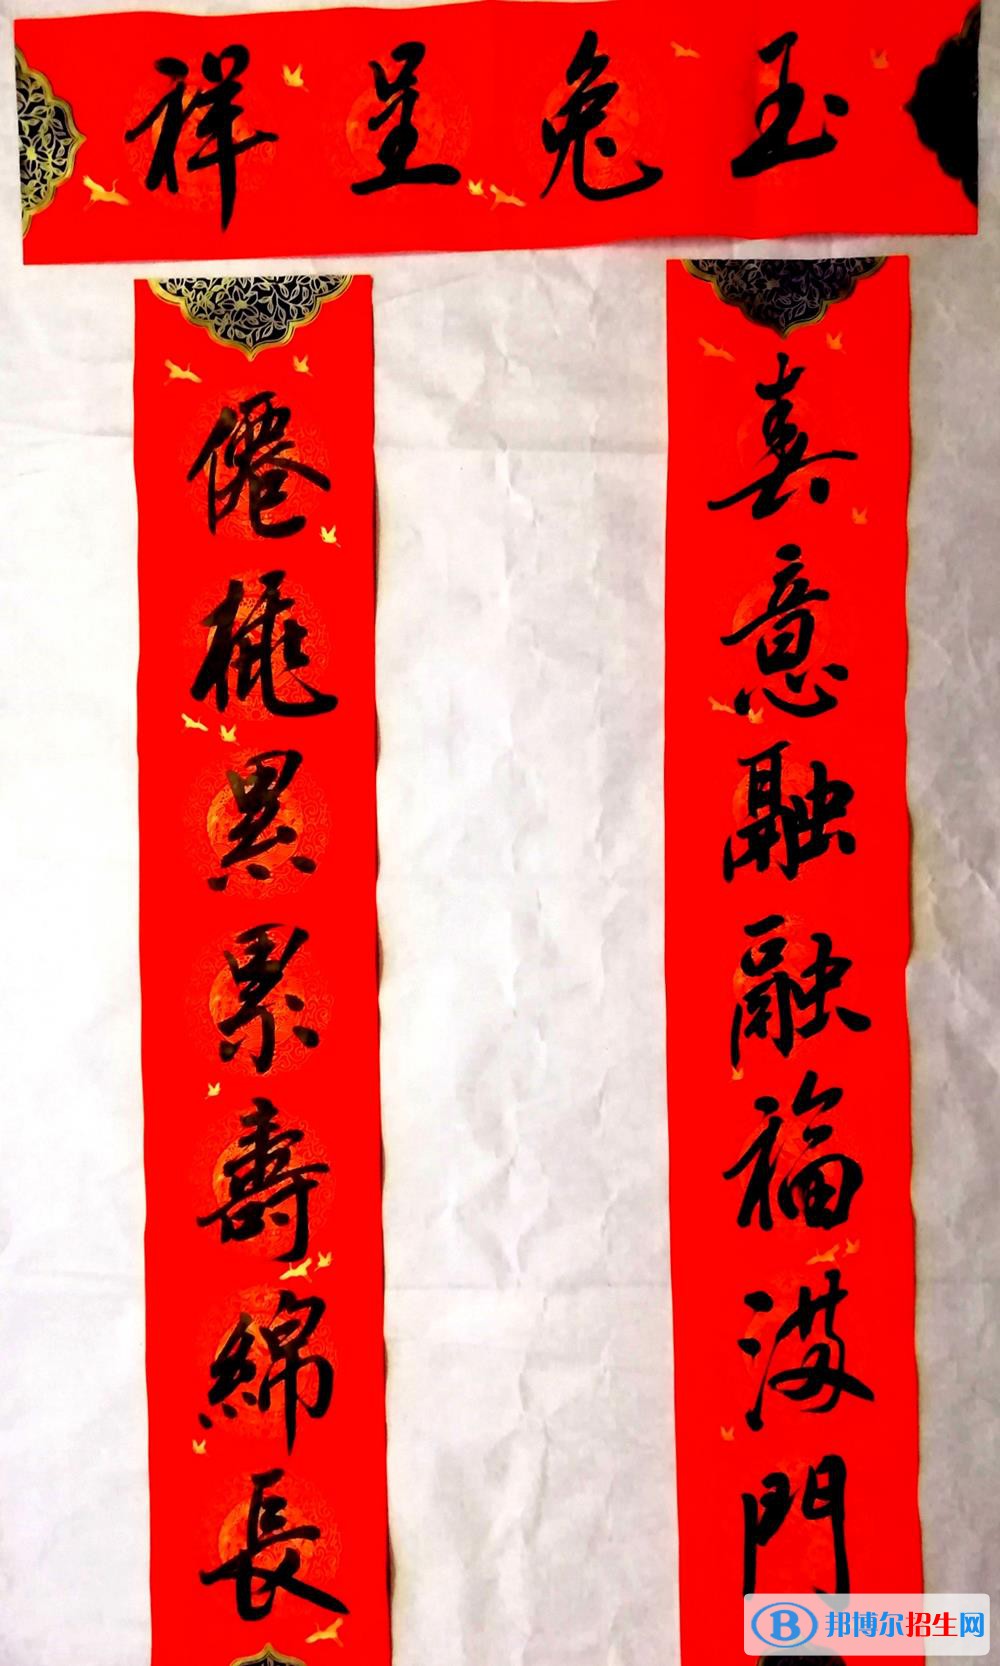 玉兔呈祥
春意融融福滿門
僊桃累累壽綿長
邦博尔招生网